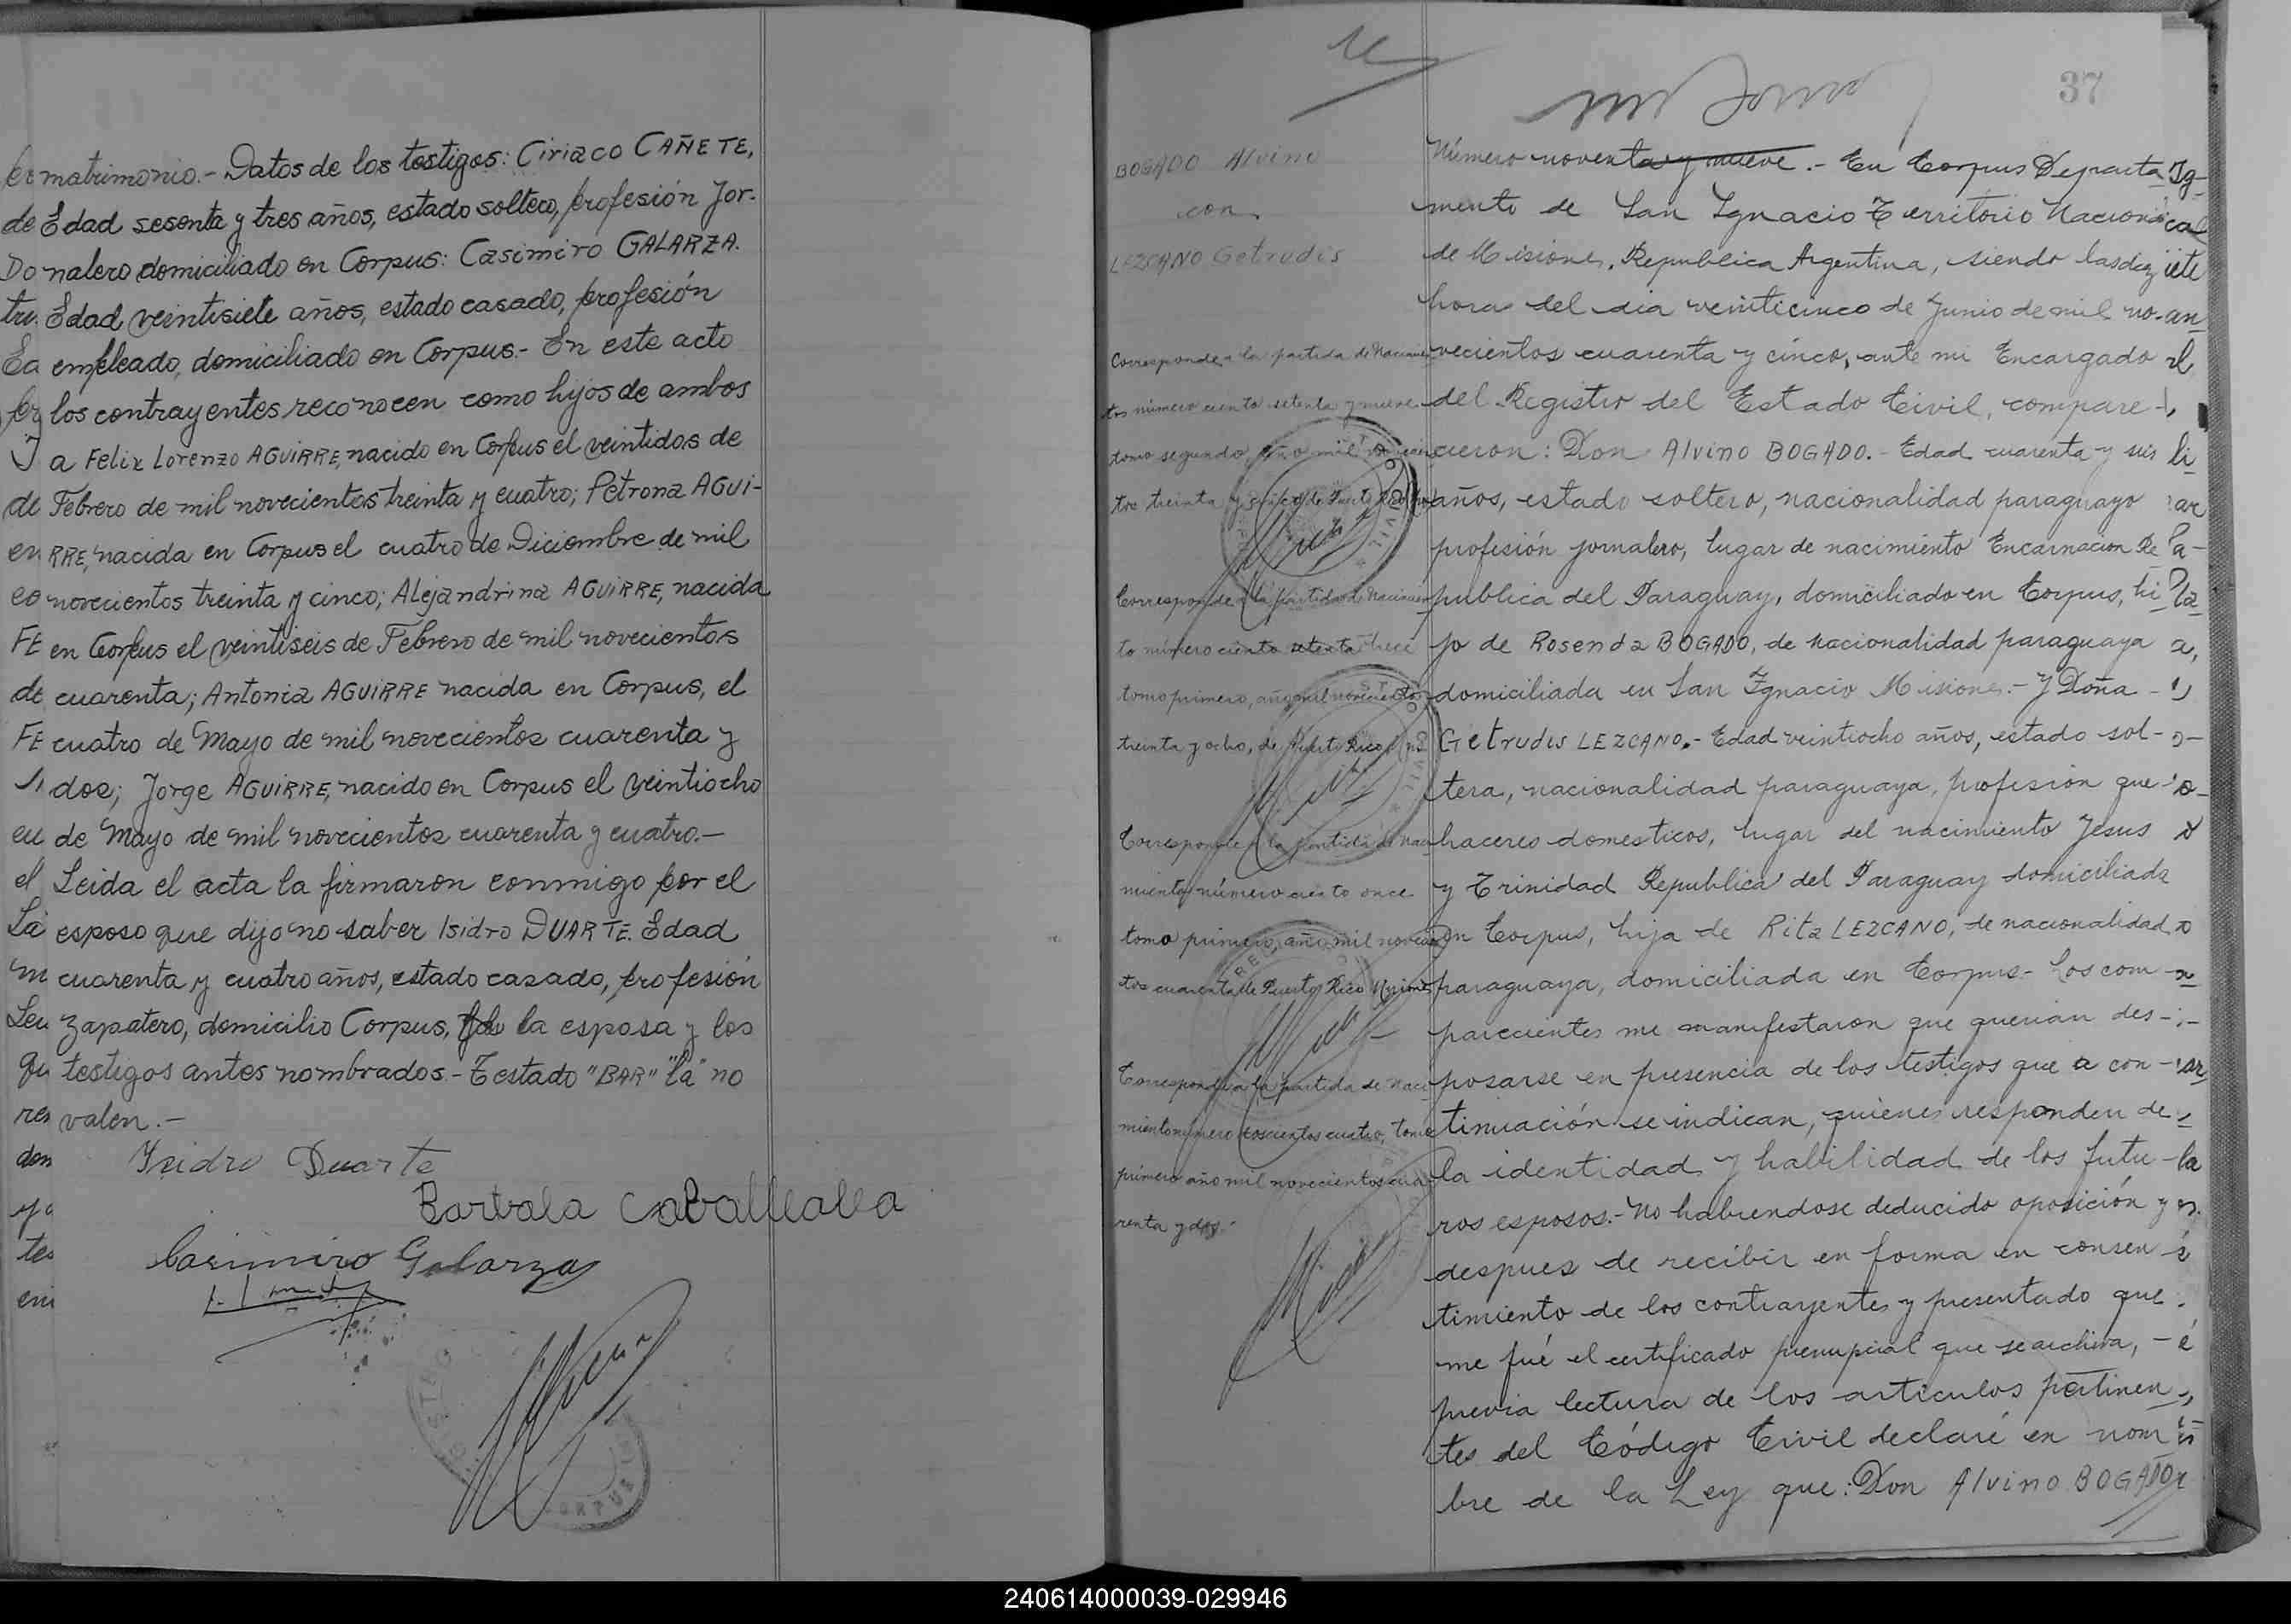 matrimonio.- Datos de los testigos: Ciriaco CAÑETE,
de Edad sesenta y tres años, estado soltero, profesión Jor-
nalero domiciliado en Corpus: Casimiro GALARZA.
Edad veintisiete años, estado casado, profesión
empleado, domiciliado en Corpus.- En este acto
los contrayentes reconocen como hijos de ambos
a Felix Lorenzo AGUIRRE, nacido en Corpus el veintidos de
Febrero de mil novecientos treinta y cuatro; Petrona AGUI-
RRE, nacida en Corpus el cuatro de Diciembre de mil
novecientos treinta y cinco; Alejandrina AGUIRRE, nacida
en Corpus el veintiseis de Febrero de mil novecientos
cuarenta; Antonia AGUIRRE nacida en Corpus, el
cuatro de Mayo de mil novecientos cuarenta y
dos; Jorge AGUIRRE, nacido en Corpus el veintiocho
de Mayo de mil novecientos cuarenta y cuatro.-
Leida el acta la firmaron conmigo por el
esposo que dijo no saber Isidro DUARTE. Edad
cuarenta y cuatro años, estado casado, profesión
zapatero, domicilio Corpus, la esposa y los
testigos antes nombrados.- Testado "BAR" "la" no
valen.-
Isidro Duarte
Casimiro Galarza
37
BOGADO Alvino
con
LEZCANO Getrudis
Corresponde a la partida de Nacimien
tos número ciento setenta y nueve
tomo segundo, año mil novecien
tos treinta
Corresponde a la partida de Nacimien
to número ciento setenta trece
tomo primero, año mil novecientos
treinta y ocho, de Puerto Rico
Corresponde a la partida de Naci
miento número ciento once
tomo primero, año mil novecien
tos cuarenta de Puerto Rico Misiones
Corresponde a la partida de Naci
miento número doscientos cuatro, tomo
primero año mil novecientos cua
renta y dos.-
Número noventa y nueve.- En Corpus Departa
mento de San Ignacio Territorio Nacional
de Misiones, Republica Argentina, siendo las diez
horas del dia veinticinco de Junio de mil no-
vecientos cuarenta y cinco, ante mi Encargado
del Registro del Estado Civil, compare-
cieron: Don Alvino BOGADO.- Edad cuarenta y seis
años, estado soltero, nacionalidad paraguayo
profesión jornalero, lugar de nacimiento Encarnacion Re
publica del Paraguay, domiciliado en Corpus, hi
jo de Rosenda BOGADO, de nacionalidad paraguaya
domiciliada en San Ignacio Misiones.- Y Doña
Getrudis LEZCANO.- Edad veintiocho años, estado sol-
tera, nacionalidad paraguaya, profesión que-
haceres domesticos, lugar del nacimiento Jesus
y Trinidad Republica del Paraguay domiciliada
en Corpus, hija de Rita LEZCANO, de nacionalidad
paraguaya, domiciliada en Corpus.- Los com
parecientes me manifestaron que querian des-
posarse en presencia de los testigos que a con-
tinuación se indican, quienes responden de
la identidad y habilidad de los futu-
ros esposos.- No habiendose deducido oposición y
despues de recibir en forma en consen
timiento de los contrayentes y presentado que
me fué el certificado prenupcial que se archiva,
previa lectura de los articulos pertinen-
tes del Código Civil declaré en nom
bre de la Ley que: Don Alvino BOGADO
240614000039-029946